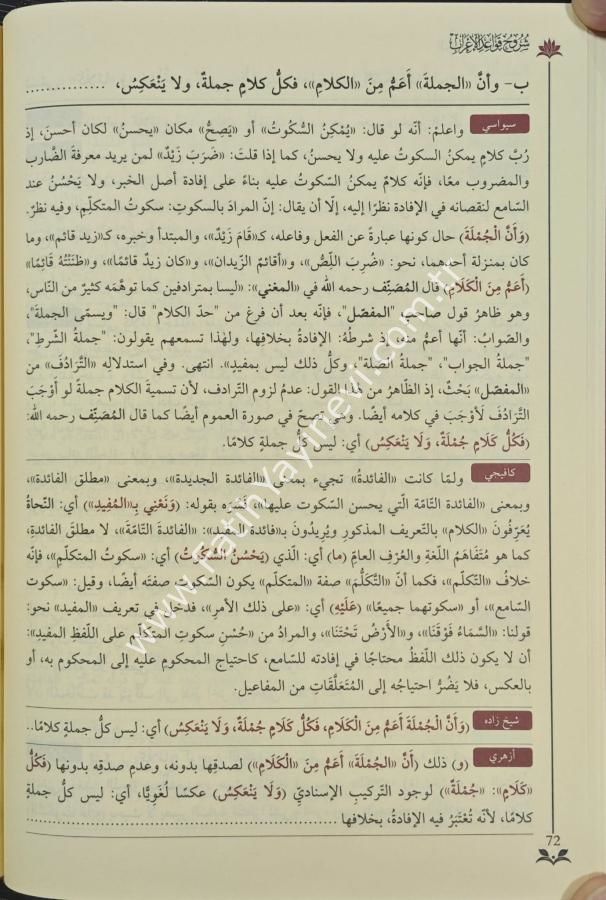 شروح قواعد الإعراب
ب- وأنّ «الجملةَ» أَعَمُّ مِنَ «الكلامِ»، فكلُّ كلامٍ جملةٌ، ولا يَنْعَكِسُ، ..............
سيواسي واعلمْ: أنّه لو قال: «يُمْكِنُ السُّكُوتُ» أو «يَصِحُّ» مكان «يحسنُ» لكان أحسنَ، إذ
رُبَّ كلامٍ يمكنُ السكوت عليه ولا يحسنُ، كما إذا قلتَ: «ضَرَبَ زَيْدٌ» لمن يريد معرفةَ الضّارب
والمضروب معًا، فإنّه كلامٌ يمكنُ السّكوت عليه بناءً على إفادة أصل الخبر، ولا يَحْسُنُ عند
السّامع لنقصانه في الإفادة نظرًا إليه، إلّا أن يقال: إنّ المرادَ بالسكوتِ: سكوتُ المتكلّم، وفيه نظرٌ.
(وَأَنَّ الْجُمْلَةَ) حال كونها عبارةً عن الفعل وفاعله، كـ«قَامَ زَيْدٌ»، والمبتدأ وخبره، كـ«زيد قائم»، وما
كان بمنزلة أحدهما، نحو: «ضُرِبَ اللِّصُّ»، و«أقائمٌ الزّيدان»، و«كان زيدٌ قائمًا»، و«ظَنَنْتُهُ قَائِمًا»
(أَعَمُّ مِنَ الْكَلَامِ) قال المُصَنِّف رحمه الله في «المغني»: «ليسا بمترادفين كما توهَّمَه كثيرٌ من النّاس،
وهو ظاهرُ قول صاحب "المفصّل"، فإنّه بعد أن فرغ من "حدّ الكلام" قال: "ويسمّى الجملةَ"،
والصّوابُ: أنّها أعمُّ منه، إذ شرطُهُ: الإفادةُ بخلافِها، ولهٰذا تسمعهم يقولون: "جملةُ الشّرطِ"،
"جملةُ الجواب"، "جملةُ الصّلة"، وكلُّ ذلك ليس بمفيدٍ». انتهى. وفي استدلالِه «التَّرَادُفَ» من
«المفصّل» بَحْثٌ، إذ الظّاهرُ من هٰذا القول: عدمُ لزوم التّرادف، لأن تسميةَ الكلام جملةً لو أَوْجَبَ
التّرَادُفَ لَأَوْجَبَ في كلامه أيضًا. وهي تصحّ في صورة العموم أيضًا كما قال المُصَنِّف رحمه الله:
(فَكُلُّ كَلَامٍ جُمْلَةٌ، وَلَا يَنْعَكِسُ) أي: ليس كلُّ جملةٍ كلامًا.
كافيجي ولمّا كانت «الفائدةُ» تجيء بمعنى «الفائدة الجديدة»، وبمعنى «مطلق الفائدة»،
وبمعنى «الفائدة التّامّة الّتي يحسن السّكوت عليها»، فَسَّرَه بقوله: (وَنَعْنِي بِـ«المُفِيدِ») أي: النّحاةُ
يُعَرِّفُونَ «الكلام» بالتّعريف المذكور ويُرِيدُونَ بـ«فائدة المفيد»: «الفائدةَ التّامّةَ»، لا مطلقَ الفائدةِ،
كما هو مُتَفَاهَمُ اللّغةِ والعُرْفِ العامِّ (ما) أي: الّذي (يَحْسُنُ السُّكُوتُ) أي: «سكوتُ المتكلّمِ»، فإنّه
خلافُ «التّكلّم»، فكما أنّ «التّكلُّمَ» صفة «المتكلم» يكون السّكوت صفتَه أيضًا، وقيل: «سكوت
السّامع»، أو «سكوتهما جميعًا» (عَلَيْهِ) أي: «على ذلك الأمرِ»، فدخل في تعريف «المفيد» نحو:
قولنا: «السَّمَاءُ فَوْقَنَا»، و«الْأَرْضُ تَحْتَنَا»، والمرادُ من «حُسْنِ سكوتِ المتكلّمِ على اللّفظِ المفيدِ»:
أن لا يكون ذلك اللّفظُ محتاجًا في إفادته للسّامع، كاحتياج المحكوم عليه إلى المحكوم به، أو
بالعكس، فلا يَضُرُّ احتياجُه إلى المُتَعَلَّقَاتِ من المفاعيل.
شيخ زاده (وَأَنَّ الْجُمْلَةَ أَعَمُّ مِنَ الْكَلَامِ، فَكُلُّ كَلَامٍ جُمْلَةٌ، وَلَا يَنْعَكِسُ) أي: ليس كلُّ جملةٍ كلامًا..
أزهري (و) ذلك (أَنَّ «الجُمْلَةَ» أَعَمُّ مِنَ «الْكَلَامِ») لصدقِها بدونه، وعدمِ صدقِه بدونها (فَكُلُّ
«كَلَامٍ»: «جُمْلَةٌ») لوجود التّركيبِ الإسناديِّ (وَلَا يَنْعَكِسُ) عكسًا لُغَوِيًّا، أي: ليس كلُّ جملةٍ
كلامًا، لأنّه تُعْتَبَرُ فيه الإفادةُ، بخلافها ..........................................
72
www.FatihYayinevi.com.tr